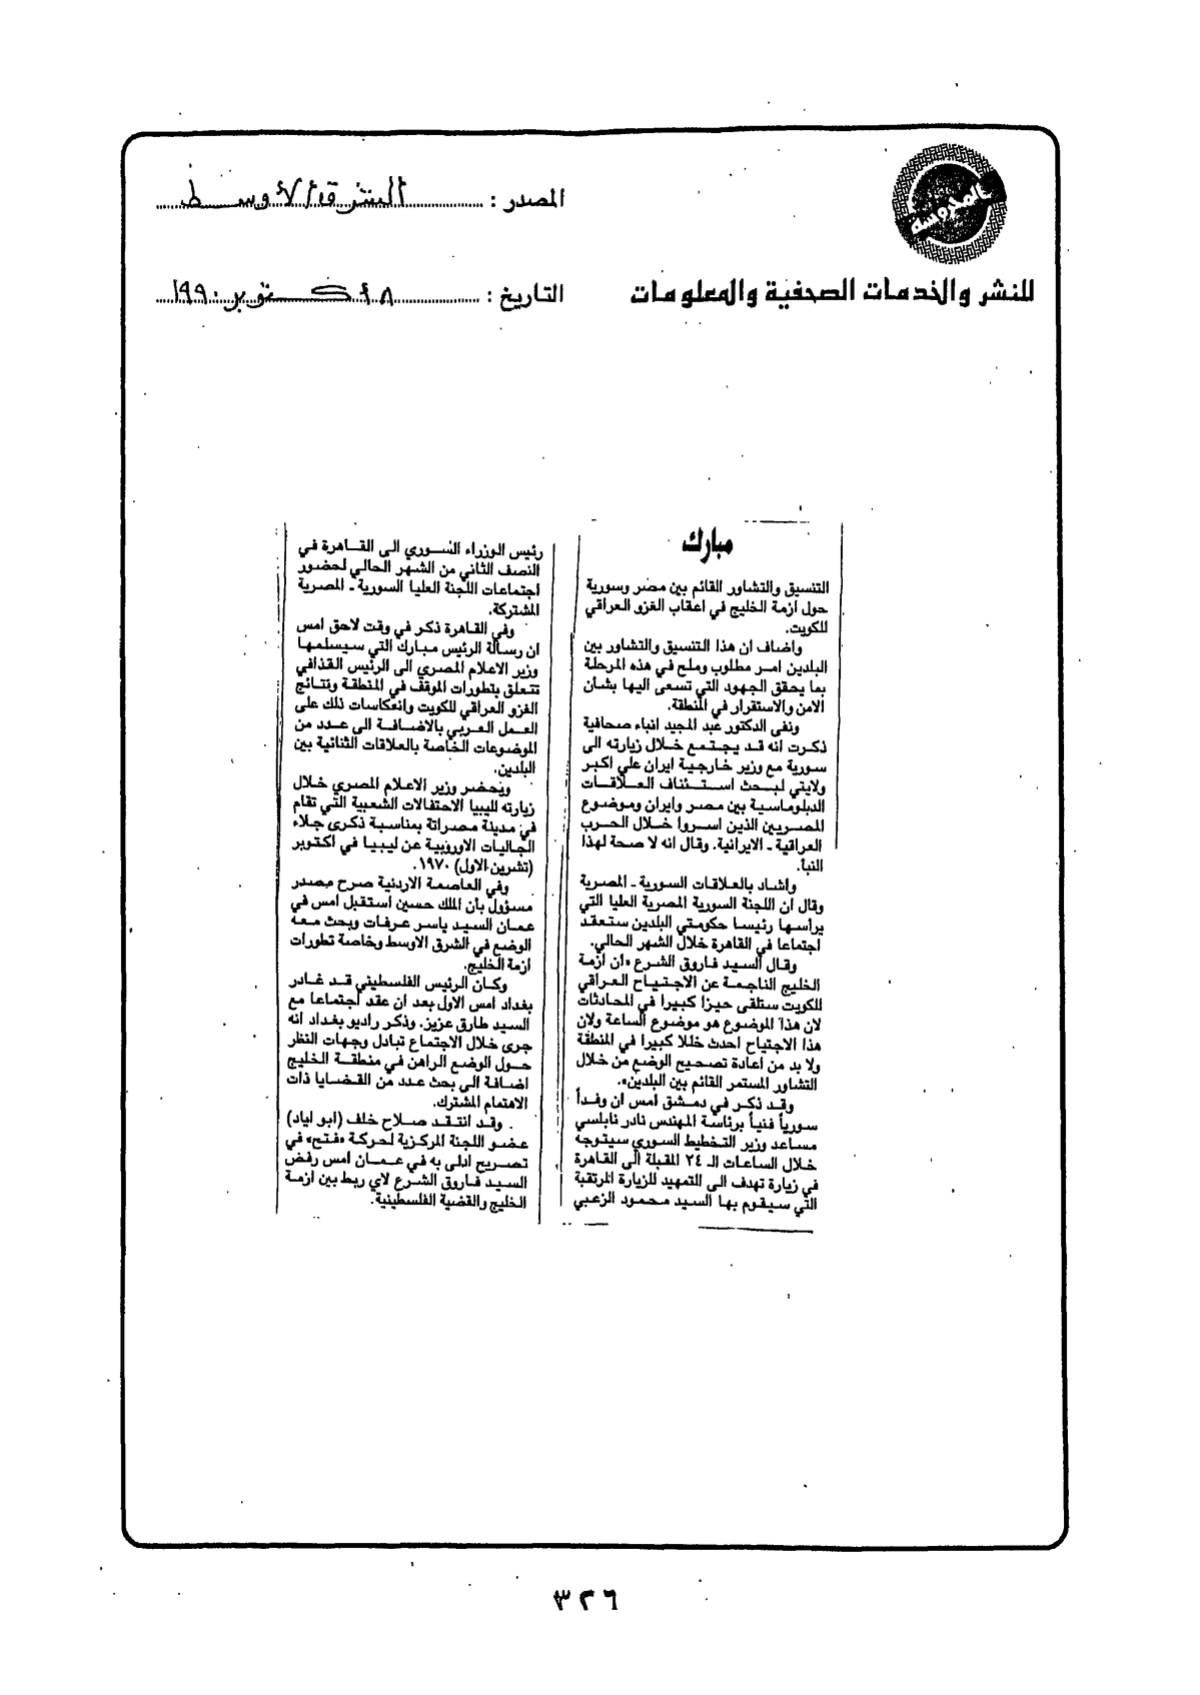 المحروسة
المصدر : الشرق الأوسط
للنشر والخدمات الصحفية والمعلومات
التاريخ : ٨ أكتوبر ١٩٩٠
مبارك
التنسيق والتشاور القائم بين مصر وسورية
حول ازمة الخليج في اعقاب الغزو العراقي
للكويت.
واضاف ان هذا التنسيق والتشاور بين
البلدين امر مطلوب وملح في هذه المرحلة
بما يحقق الجهود التي تسعى اليها بشان
الامن والاستقرار في المنطقة.
ونفى الدكتور عبد المجيد انباء صحافية
ذكرت انه قد يجتمع خلال زيارته الى
سورية مع وزير خارجية ايران علي اكبر
ولايتي لبحث استئناف العلاقات
الدبلوماسية بين مصر وايران وموضوع
المصريين الذين اسروا خلال الحرب
العراقية ـ الايرانية. وقال انه لا صحة لهذا
النبأ.
واشاد بالعلاقات السورية ـ المصرية
وقال ان اللجنة السورية المصرية العليا التي
يرأسها رئيسا حكومتي البلدين ستعقد
اجتماعا في القاهرة خلال الشهر الحالي.
وقال السيد فاروق الشرع «ان ازمة
الخليج الناجمة عن الاجتياح العراقي
للكويت ستلقى حيزا كبيرا في المحادثات
لان هذا الموضوع هو موضوع الساعة ولان
هذا الاجتياح احدث خللا كبيرا في المنطقة
ولا بد من اعادة تصحيح الوضع من خلال
التشاور المستمر القائم بين البلدين».
وقد ذكر في دمشق امس ان وفداً
سورياً فنياً برئاسة المهندس نادر نابلسي
مساعد وزير التخطيط السوري سيتوجه
خلال الساعات الـ ٢٤ المقبلة الى القاهرة
في زيارة تهدف الى التمهيد للزيارة المرتقبة
التي سيقوم بها السيد محمود الزعبي
رئيس الوزراء السوري الى القاهرة في
النصف الثاني من الشهر الحالي لحضور
اجتماعات اللجنة العليا السورية ـ المصرية
المشتركة.
وفي القاهرة ذكر في وقت لاحق امس
ان رسالة الرئيس مبارك التي سيسلمها
وزير الاعلام المصري الى الرئيس القذافي
تتعلق بتطورات الموقف في المنطقة ونتائج
الغزو العراقي للكويت وانعكاسات ذلك على
العمل العربي بالاضافة الى عدد من
الموضوعات الخاصة بالعلاقات الثنائية بين
البلدين.
ويحضر وزير الاعلام المصري خلال
زيارته لليبيا الاحتفالات الشعبية التي تقام
في مدينة مصراتة بمناسبة ذكرى جلاء
الجاليات الاوروبية عن ليبيا في اكتوبر
(تشرين الاول) ١٩٧٠.
وفي العاصمة الاردنية صرح مصدر
مسؤول بأن الملك حسين استقبل امس في
عمان السيد ياسر عرفات وبحث معه
الوضع في الشرق الاوسط وخاصة تطورات
ازمة الخليج.
وكان الرئيس الفلسطيني قد غادر
بغداد امس الاول بعد ان عقد اجتماعا مع
السيد طارق عزيز. وذكر راديو بغداد انه
جرى خلال الاجتماع تبادل وجهات النظر
حول الوضع الراهن في منطقة الخليج
اضافة الى بحث عدد من القضايا ذات
الاهتمام المشترك.
وقد انتقد صلاح خلف (ابو اياد)
عضو اللجنة المركزية لحركة «فتح» في
تصريح ادلى به في عمان امس رفض
السيد فاروق الشرع لاي ربط بين ازمة
الخليج والقضية الفلسطينية.
٣٢٦